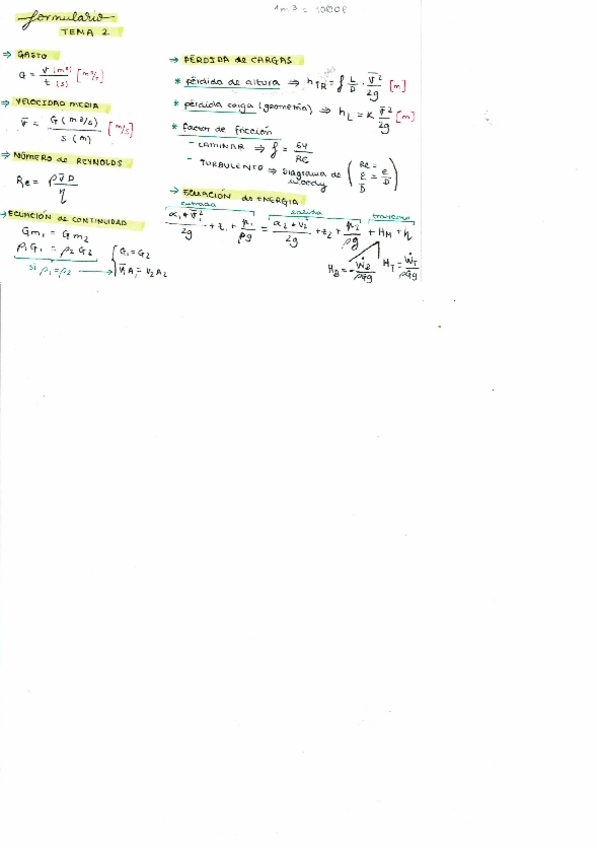 1m³ = 1000ℓ
formulario
TEMA 2
⇒ GASTO
G = V (m³) / t (s) [m³/s]
⇒ VELOCIDAD MEDIA
v̄ = G (m³/s) / S (m) [m/s]
⇒ NÚMERO de REYNOLDS
Re = ρ v̄ D / η
⇒ ECUACIÓN de CONTINUIDAD
Gm₁ = Gm₂
ρ₁G₁ = ρ₂G₂
si ρ₁=ρ₂ → { G₁=G₂
V₁A₁ = V₂A₂
⇒ PÉRDIDA de CARGAS
* pérdida de altura ⇒ hTR = f L/D · v̄²/2g [m]
* pérdida carga (geometría) ⇒ hL = K v̄²/2g [m]
* factor de fricción
- LAMINAR ⇒ f = 64/Re
- TURBULENTO ⇒ Diagrama de Moody ( Re = ε/D = e/D )
→ ECUACIÓN de ENERGIA
entrada salida
α₁+v̄²/2g + z₁ + p₁/ρg = α₂+v₂/2g + z₂ + p₂/ρg + HM + η
HB = - ẆB/ρGg HT = ẆT/ρGg